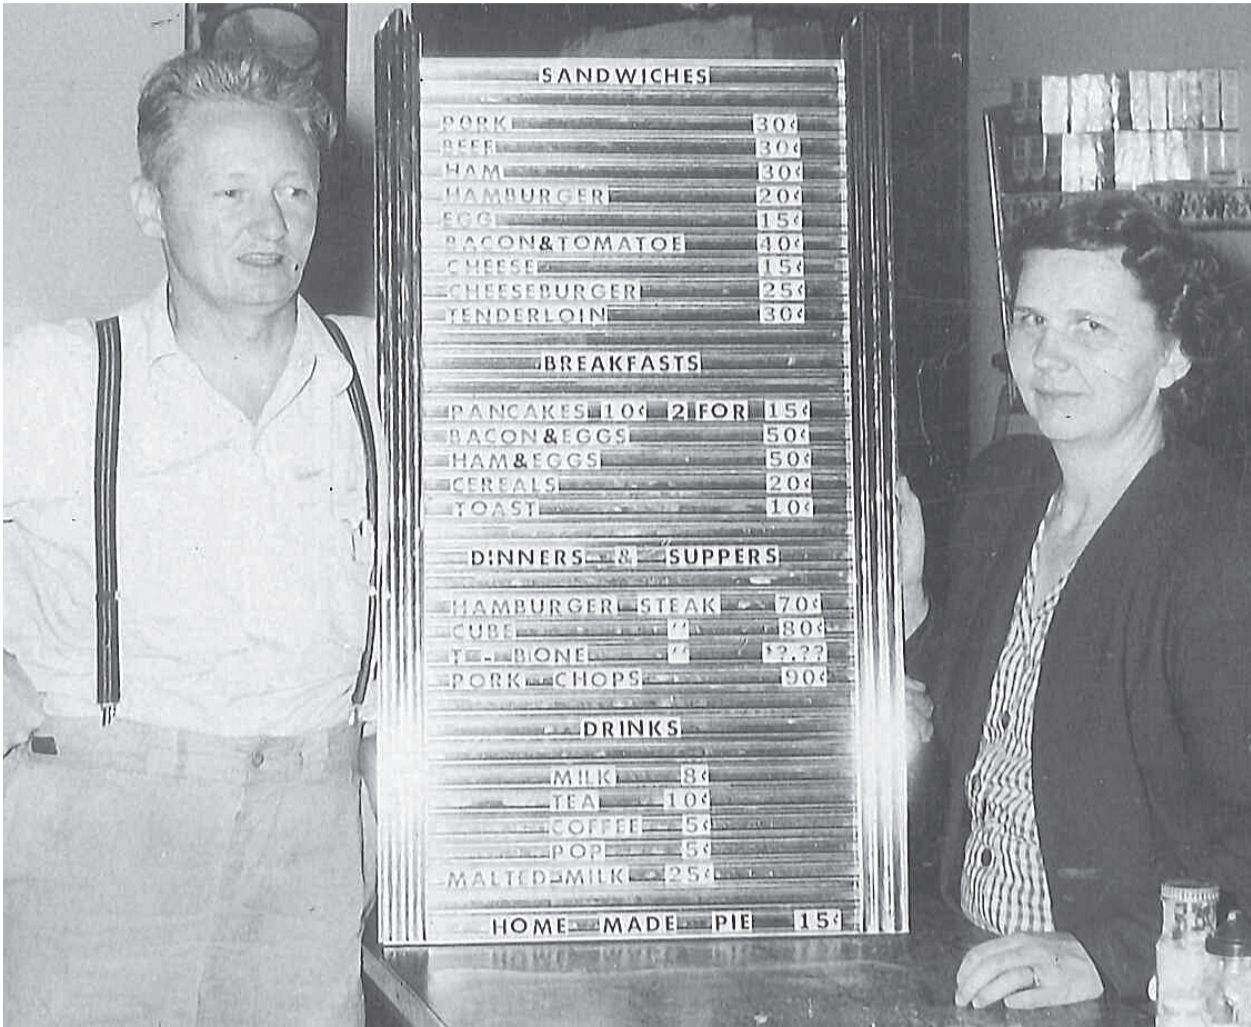 SANDWICHES
PORK 30¢
BEEF 30¢
HAM 30¢
HAMBURGER 20¢
EGG 15¢
BACON&TOMATOE 40¢
CHEESE 15¢
CHEESEBURGER 25¢
TENDERLOIN 30¢
BREAKFASTS
PANCAKES 10¢ 2 FOR 15¢
BACON&EGGS 50¢
HAM&EGGS 50¢
CEREALS 20¢
TOAST 10¢
DINNERS & SUPPERS
HAMBURGER STEAK 70¢
CUBE " 80¢
TE - BONE " $?.??
PORK CHOPS 90¢
DRINKS
MILK 8¢
TEA 10¢
COFFEE 5¢
POP 5¢
MALTED-MILK 25¢
HOME MADE PIE 15¢